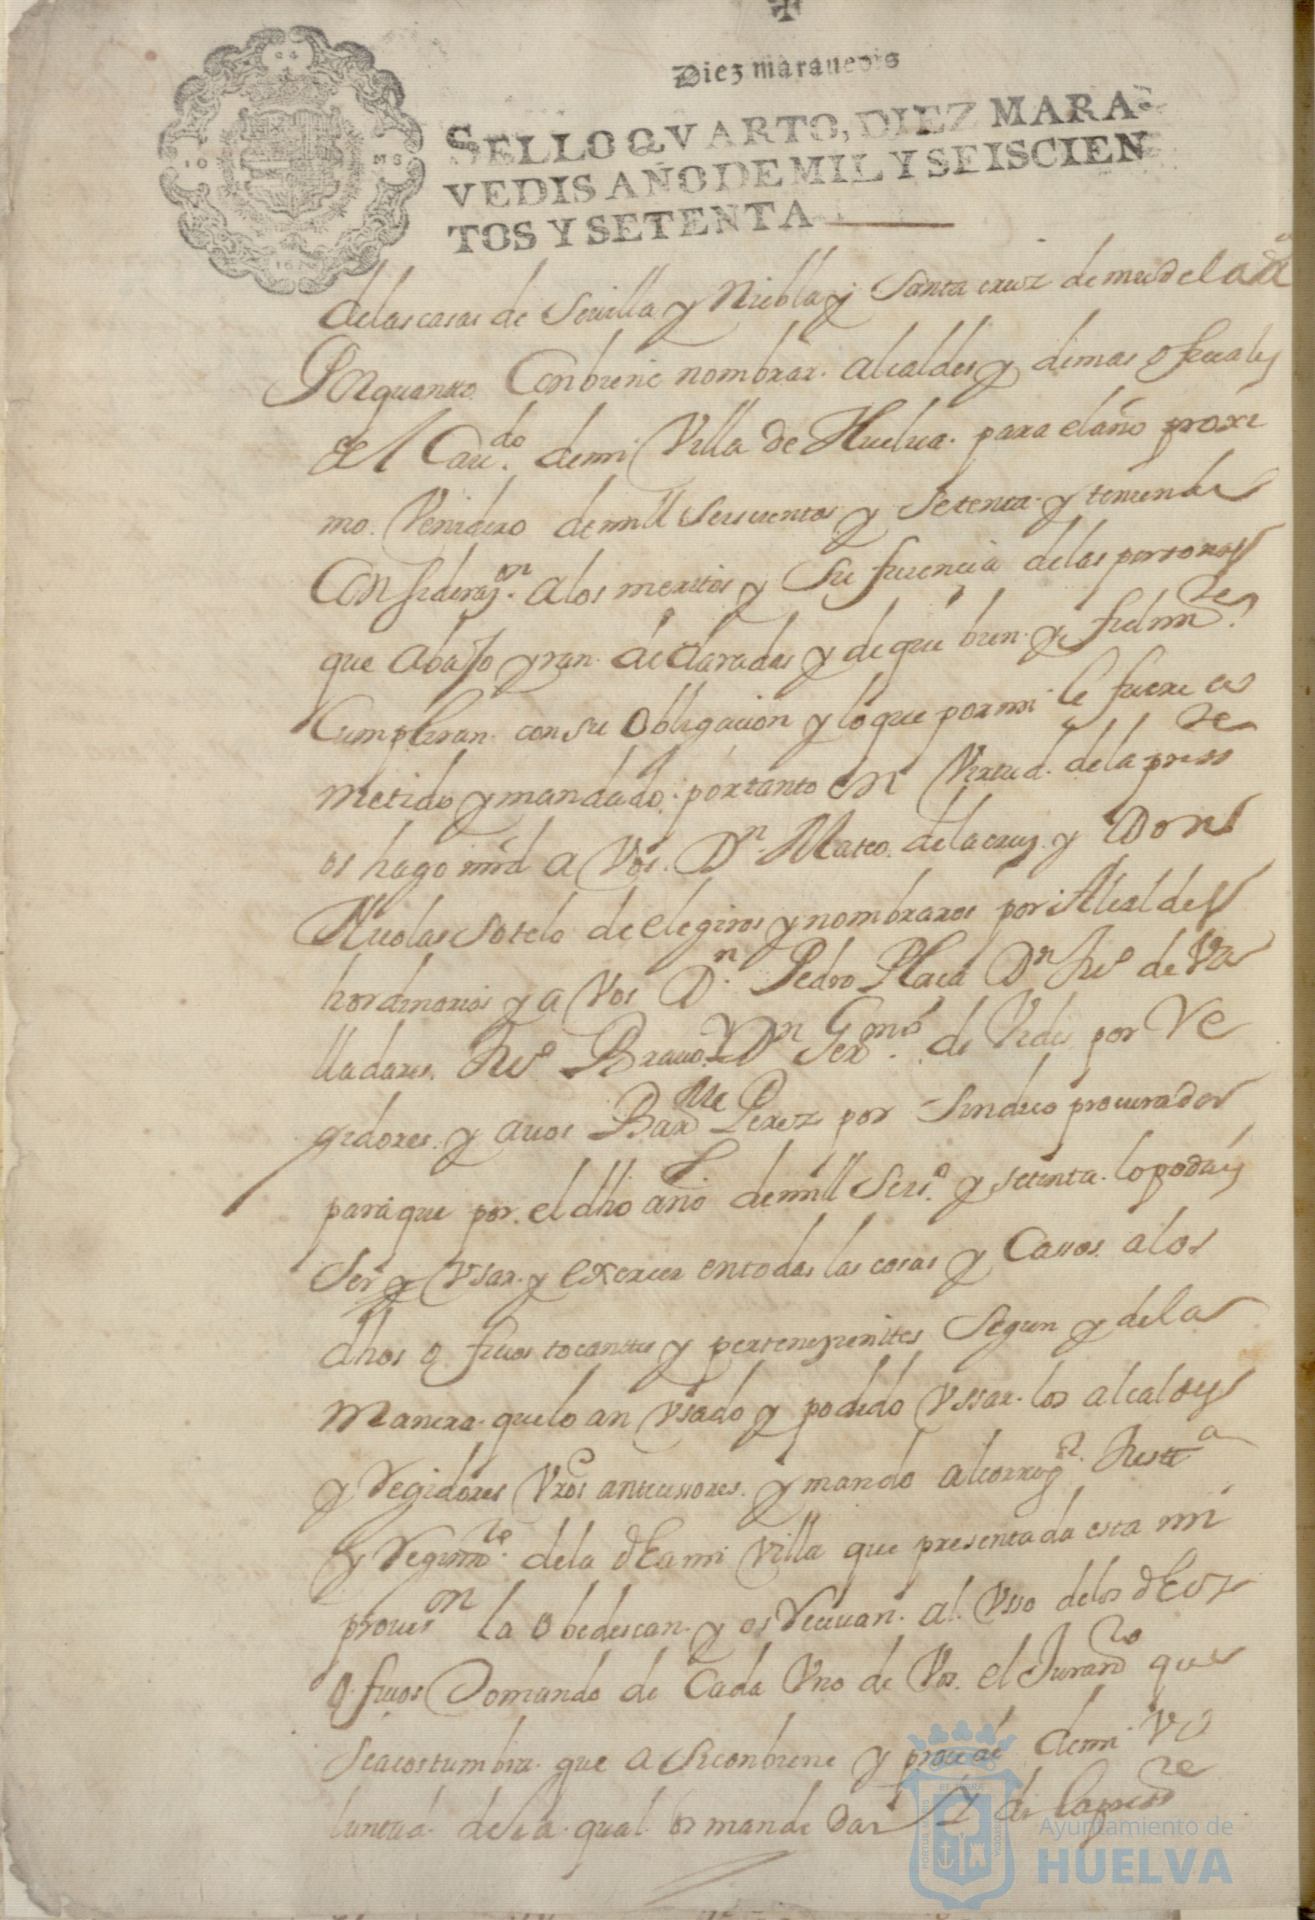 Diez marauedis
SELLO QVARTO, DIEZ MARA-
VEDIS AÑO DE MIL Y SEISCIEN
TOS Y SETENTA
de las casas de Seuilla y Niebla y Santa cruz de mudela
Por quanto Conbiene nombrar alcaldes y demas ofiçiales
del Cauºdo de mi Villa de Huelua para el año proxi
mo Venidero de mill Seiscientos y Setenta y teniendo
Consideraçon a los meritos y Sufiçiencia de las personas
que abaJo yran declaradas y de que bien y fielmte
Cumpliran con su obligaçion y lo que por mi le fuere co
metido y mandado por tanto en Virtud de la presste
os hago mrd a Vos Dn Mateo de la cruz y Don
Nicolas Sotelo de elegiros y nombraros por Alcaldes
hordinarios y a Vos Dn Pedro Plaça Dn de Va
lladares Brauo y Dn Germo de por Re
gidores y a uos Barme Perez por Sindico procurador
para que por el dho año de mill Seiso y setenta lo podais
Ser y Vsar y exercer en todas las cosas y Casos a los
dhos ofiçios tocantes y perteneçientes Segun y de la
Manera que lo an Vsado y podido Vssar los alcaldes
y Regidores Vros antecessores y mando al corregr Justa
y Regimto de la dha mi Villa que presentada esta mi
prouison la obedescan y os Reciuan al Vso de los dhos
ofiçios Tomando de Cada Vno de Vos el Juramto que
Se acostumbra que a Si conbiene y proçede de mi Vo
luntad de la qual os mande dar la presste
Ayuntamiento de
HUELVA